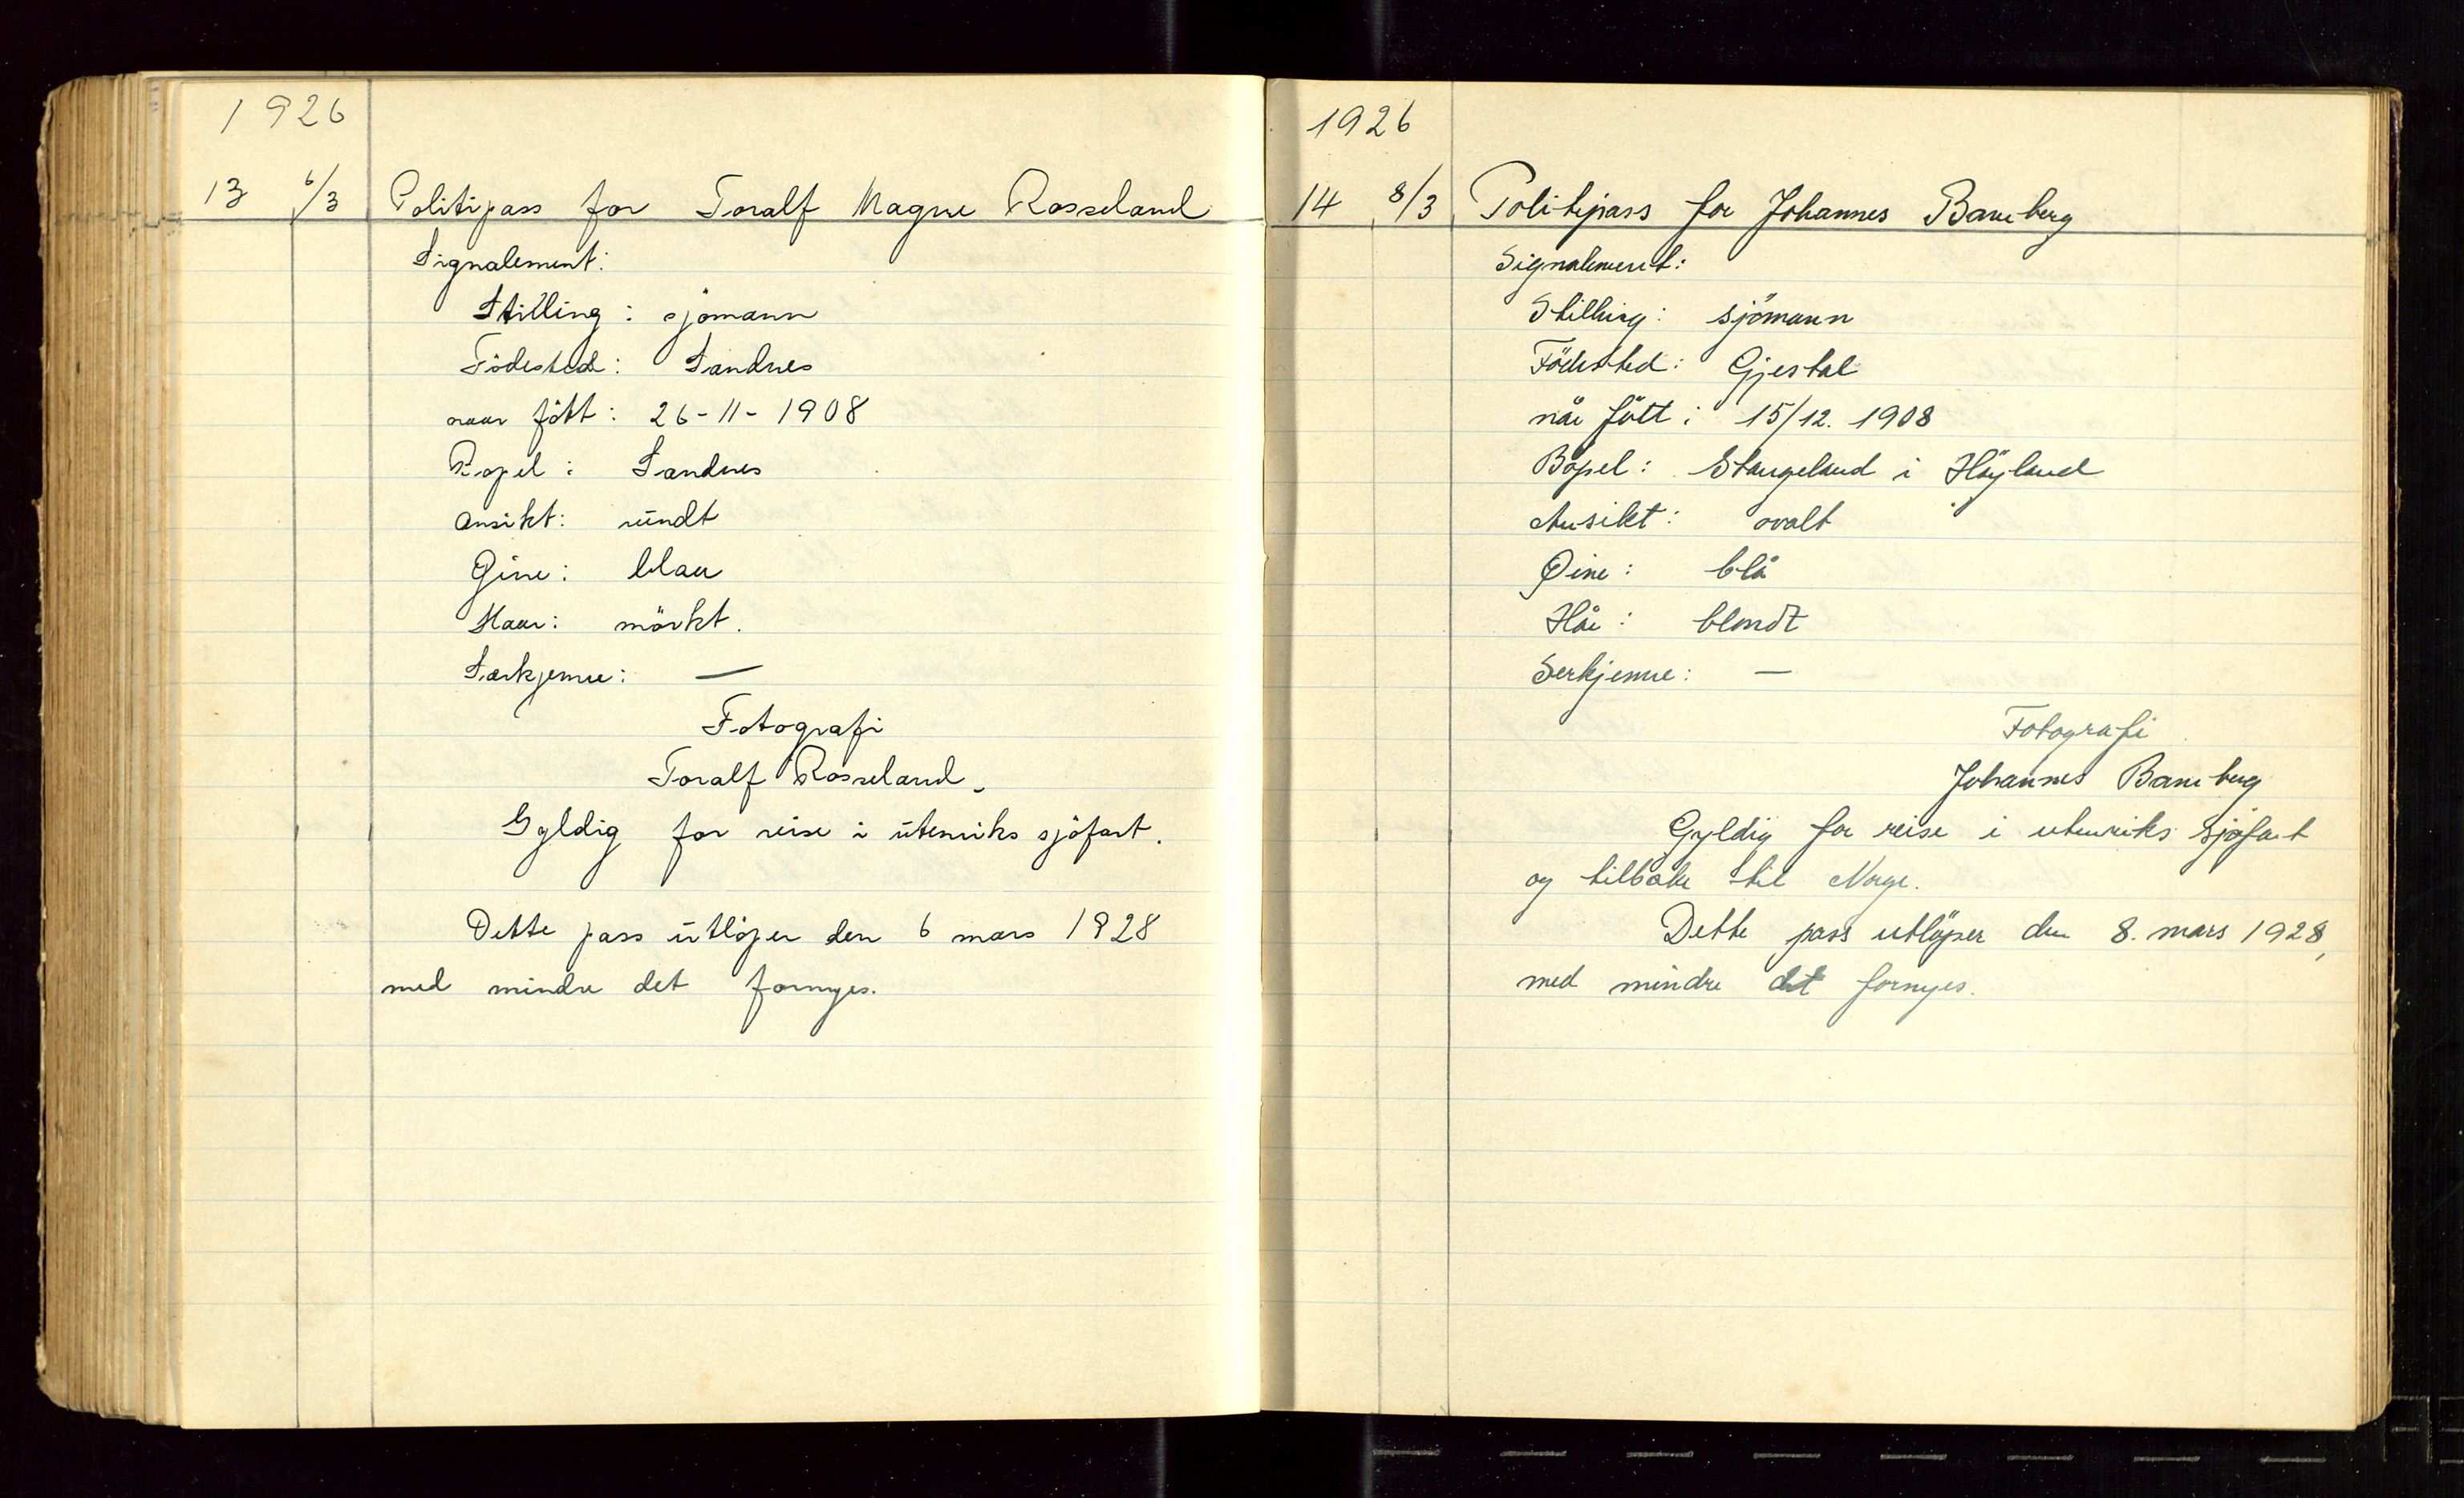 1926
13 6/3 Politipass for Toralf Magne Rosseland
Signalement:
Stilling: sjömann
Födested: Sandnes
naar fött: 26-11-1908
Bopel: Sandnes
Ansikt: rundt
Öine: blaa
Haar: mörkt.
Særkjenne: —
Fotografi
Toralf Rosseland.
Gyldig for reise i utenriks sjöfart.
Dette pass utlöper den 6 mars 1928
med mindre det fornyes.
1926
14 8/3 Politipass for Johannes Bamberg
Signalement:
Stilling: sjömann
Födested: Gjestal
når fött: 15/12. 1908
Bopel: Stangeland i Höyland
Ansikt: ovalt
Øine: blå
Hår: blondt
Serkjenne: —
Fotografi
Johannes Bamberg
Gyldig for reise i utenriks sjøfart
og tilbake til Norge.
Dette pass utlöper den 8. mars 1928,
med mindre det fornyes.